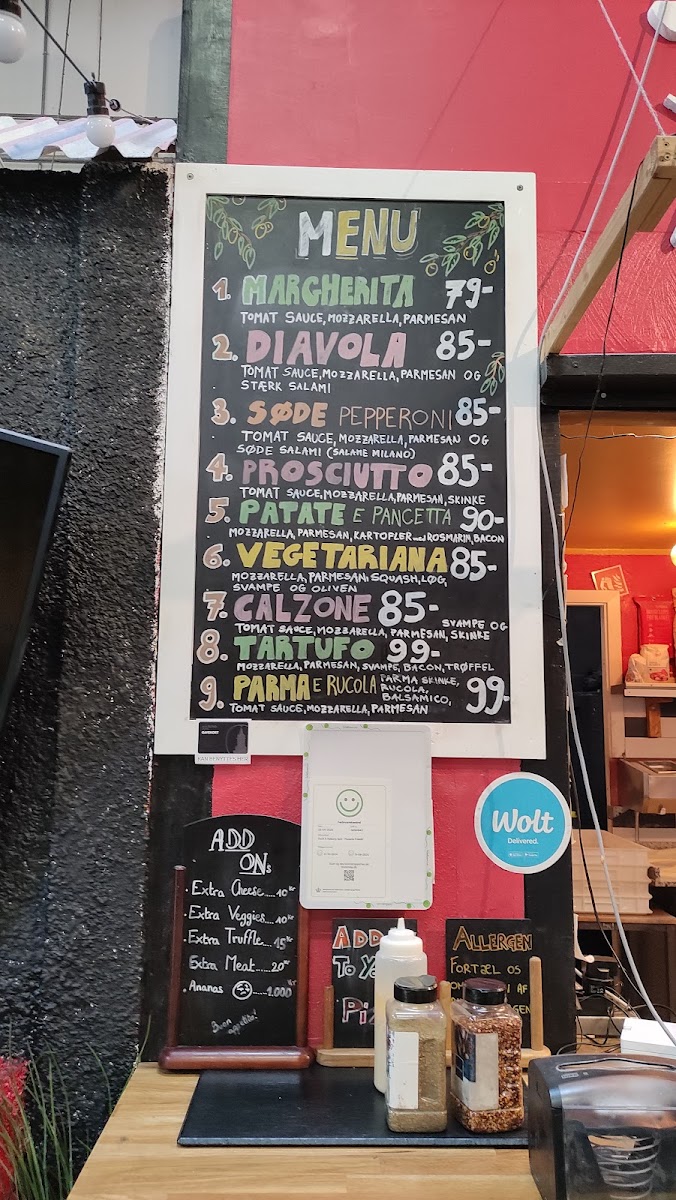 MENU
1. MARGHERITA 79-
TOMAT SAUCE, MOZZARELLA, PARMESAN
2. DIAVOLA 85-
TOMAT SAUCE, MOZZARELLA, PARMESAN OG
STÆRK SALAMI
3. SØDE PEPPERONI 85-
TOMAT SAUCE, MOZZARELLA, PARMESAN OG
SØDE SALAMI (SALAME MILANO)
4. PROSCIUTTO 85-
TOMAT SAUCE, MOZZARELLA, PARMESAN, SKINKE
5. PATATE E PANCETTA 90-
MOZZARELLA, PARMESAN, KARTOFLER med ROSMARIN, BACON
6. VEGETARIANA 85-
MOZZARELLA, PARMESAN, SQUASH, LØG,
SVAMPE OG OLIVEN
7. CALZONE 85-
SVAMPE OG
TOMAT SAUCE, MOZZARELLA, PARMESAN, SKINKE
8. TARTUFO 99-
MOZZARELLA, PARMESAN, SVAMPE, BACON, TRØFFEL
9. PARMA E RUCOLA 99-
PARMA SKINKE,
RUCOLA,
BALSAMICO,
TOMAT SAUCE, MOZZARELLA, PARMESAN
Wolt
Delivered.
ADD
ONs
. Extra Cheese....10 kr
. Extra Veggies....10 kr
. Extra Truffle...15 kr
Extra Meat.....20 kr
. Ananas ....1.000 kr
Buon
appetito!
ADD
TO YO
PIZ
ALLERGEN
FORTÆL OS
OM
AF
GEN